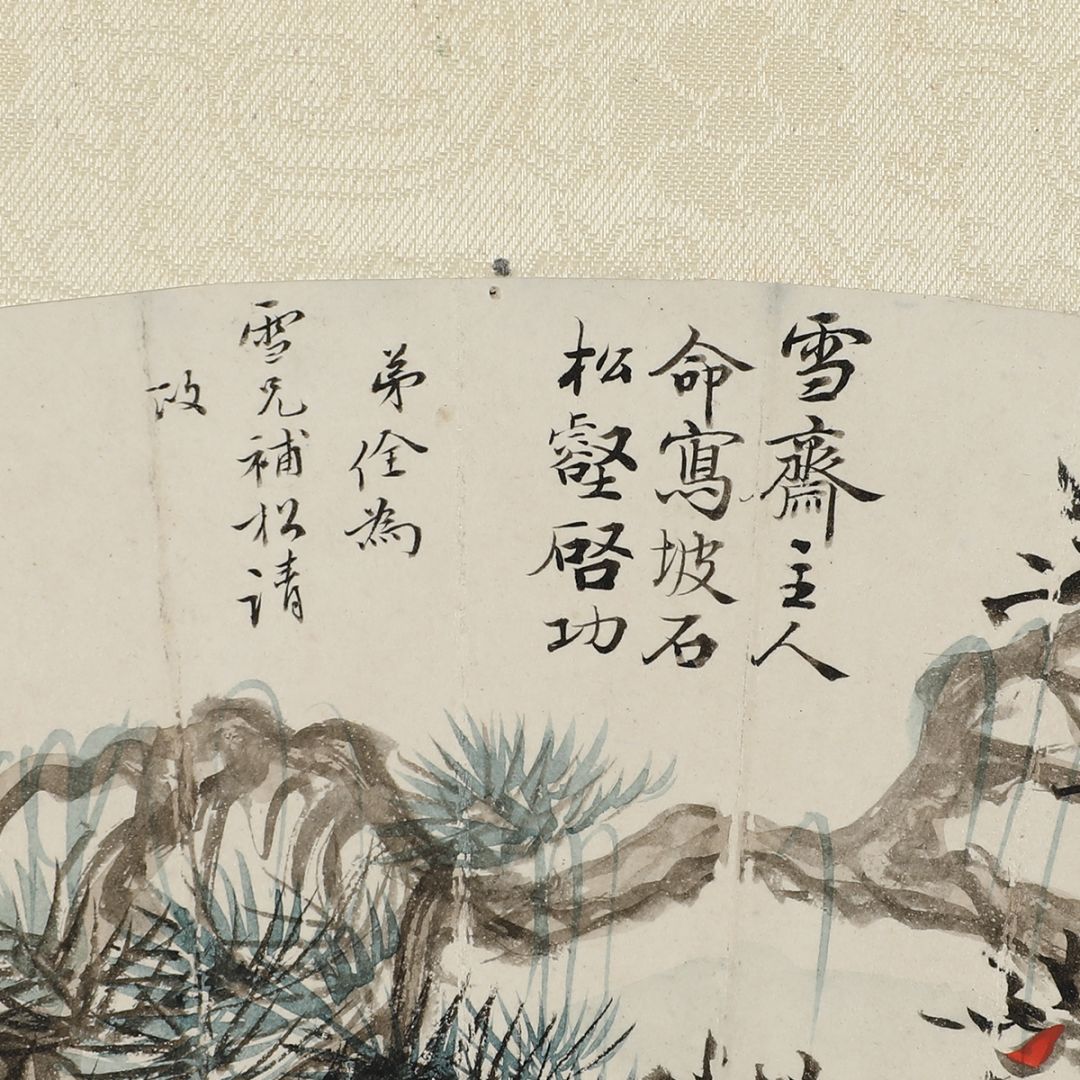 雪齋主人
命寫坡石
松壑啓功
弟佺為
雪兄補松請
政